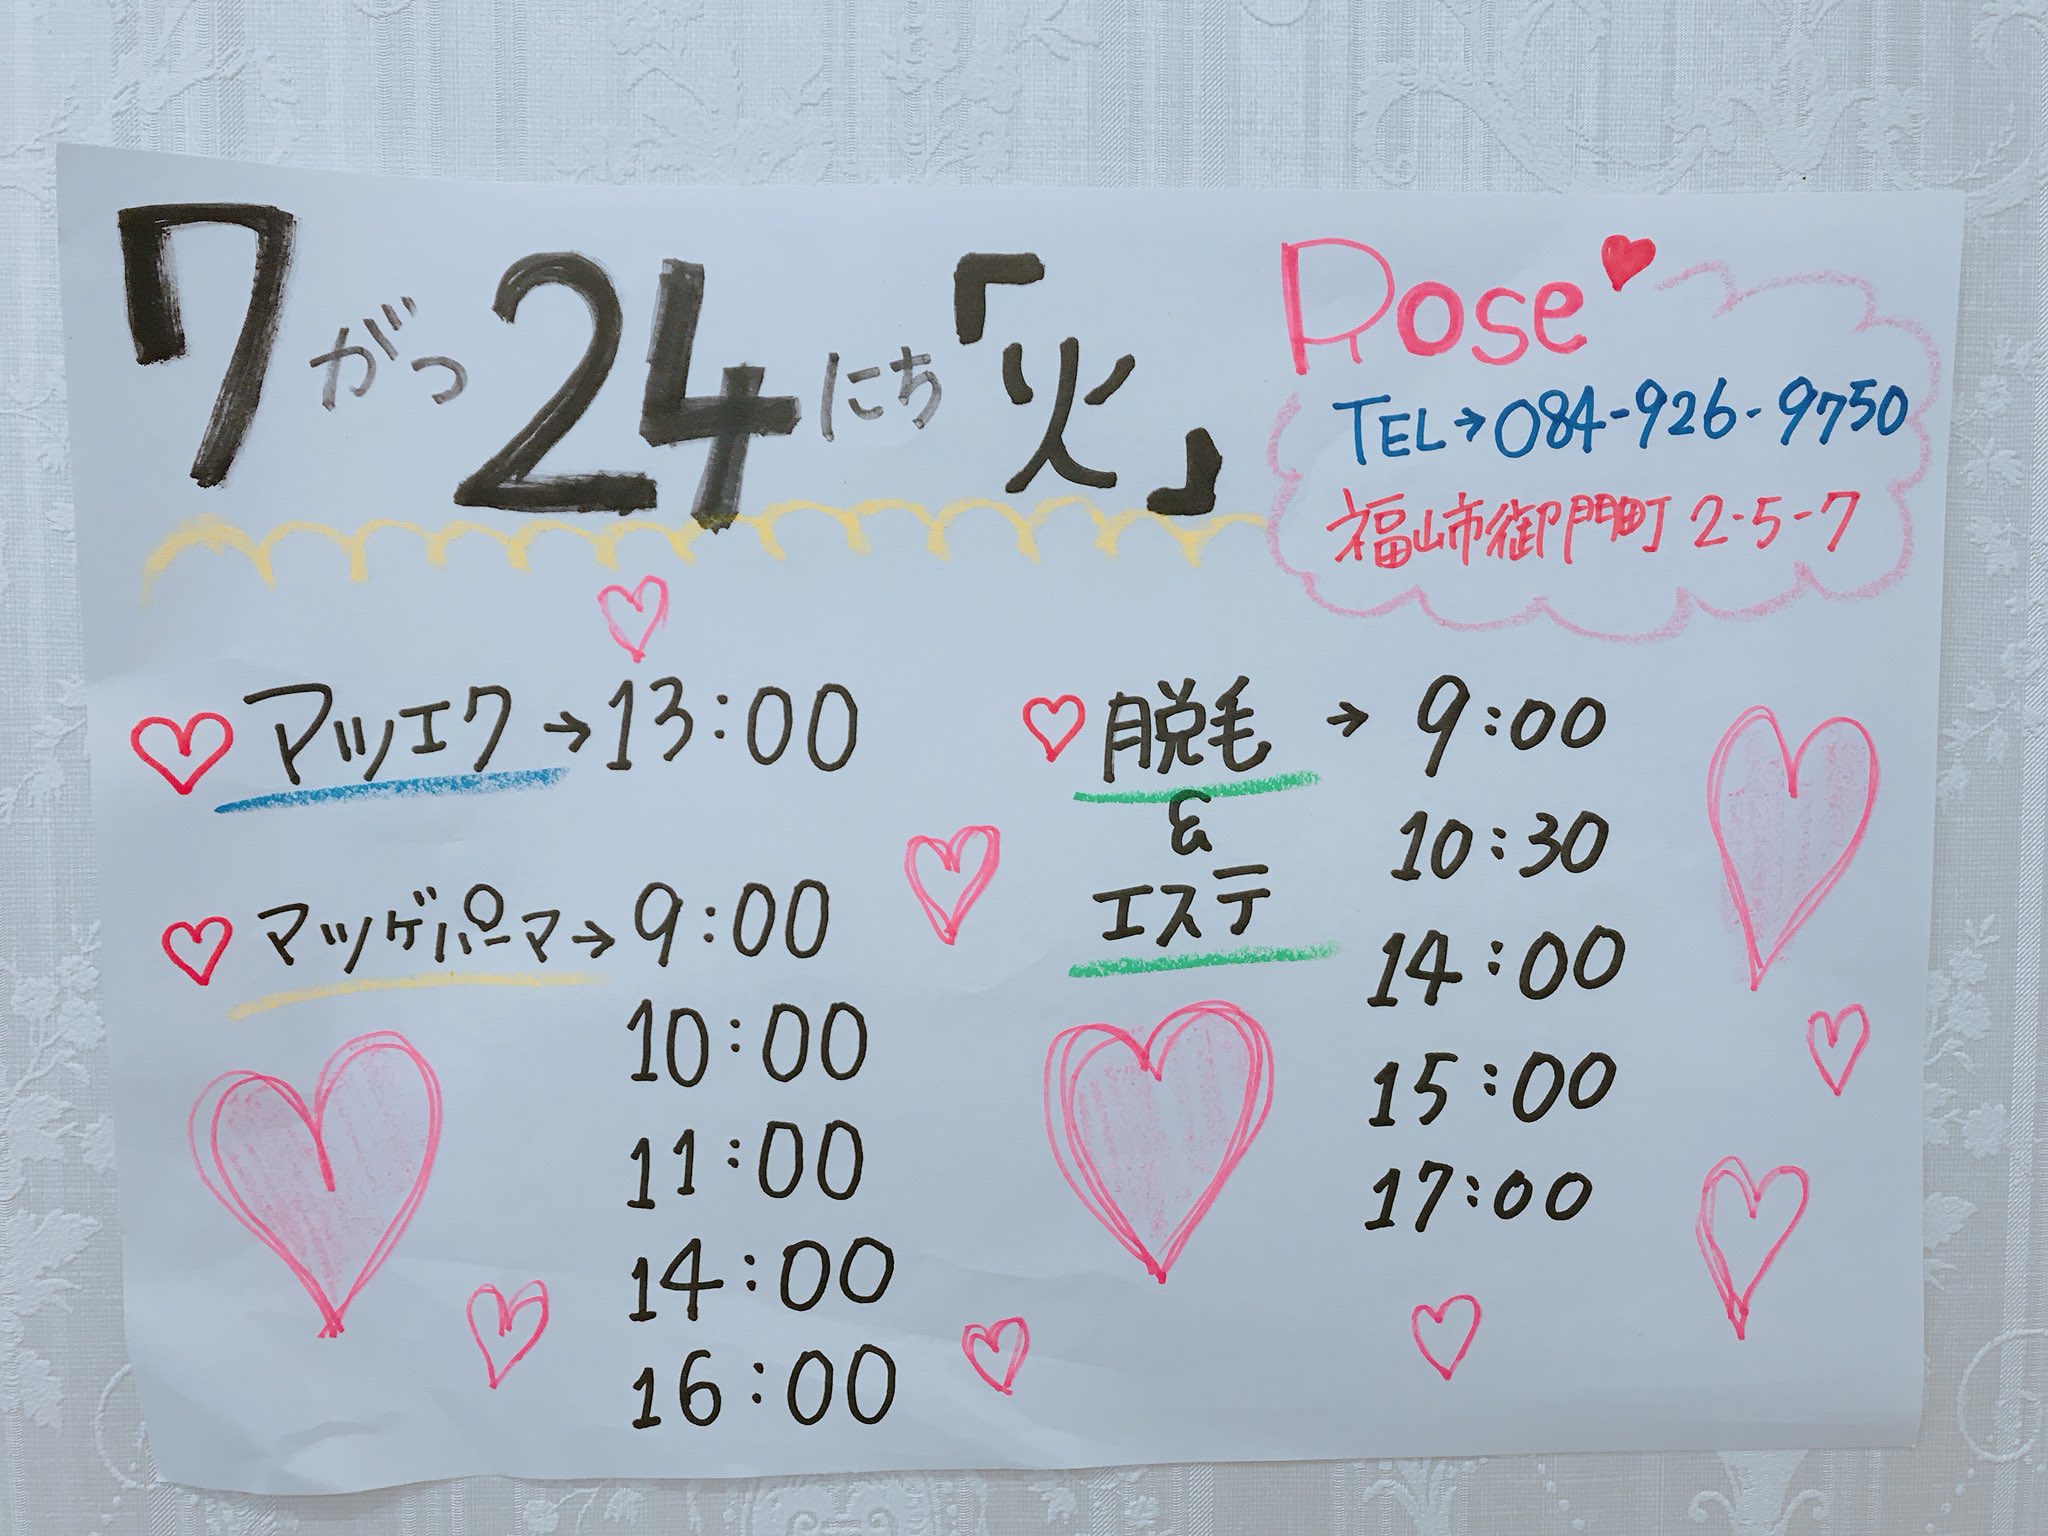 7がつ24にち「火」
Rose
TEL→084-926-9750
福山市御門町2-5-7
マツエク→13:00
マツゲパーマ→9:00
10:00
11:00
14:00
16:00
脱毛
&
エステ
→ 9:00
10:30
14:00
15:00
17:00